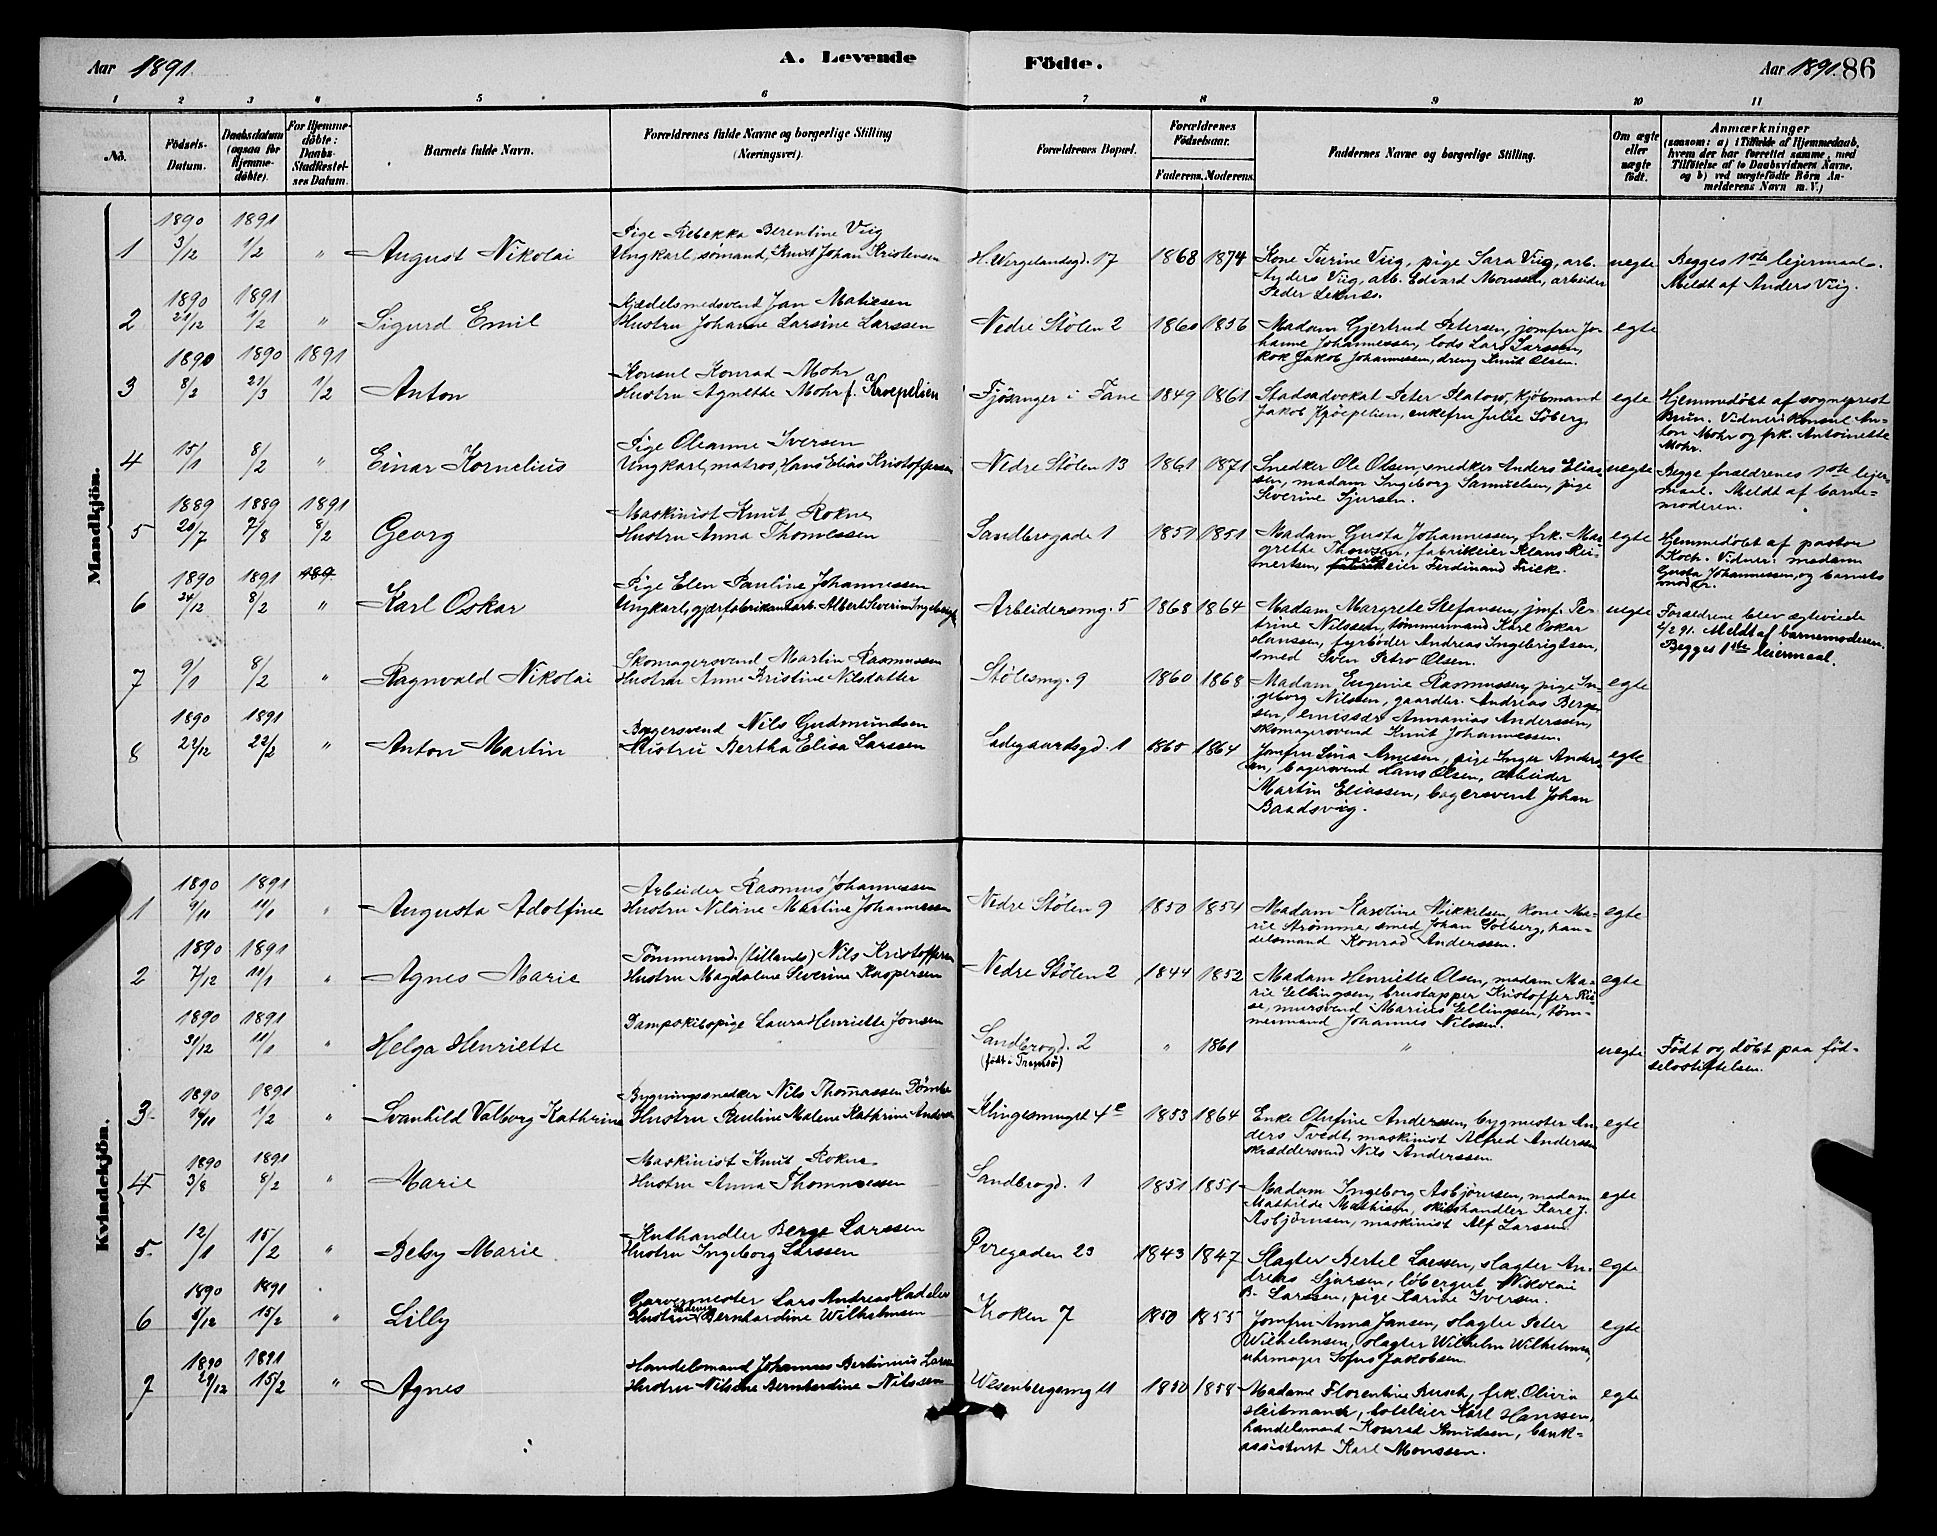 Aar 1891.
A. Levende Födte.
Aar 1891. 86
1 2 3 4 5 6 7 8 9 10 11
No.
Födsels-Datum.
Daabsdatum (ogsaa for Hjemme-döbte).
For Hjemme-döbte: Daabs-Stadfæstel-ses Datum.
Barnets fulde Navn.
Forældrenes fulde Navne og borgerlige Stilling (Næringsvei).
Forældrenes Bopæl.
Forældrenes Födselsaar.
Faderens. Moderens.
Faddernes Navne og borgerlige Stilling.
Om ægte eller uægte födt.
Anmærkninger
(saasom: a) i Tilfælde af Hjemmedaab, hvem der har forrettet samme, med Tilföielse af to Daabsvidners Navne, og b) ved uægtefödte Börn An-melderens Navn m. V.)
Mandkjön.
1 1890 3/12 1891 1/2 " August Nikolai
Pige Rebekka Berentine Viig
Ungkarl, sömand, Knut Johan Kristensen
H. Wergelandsgd. 17 1868 1874
Kone Turine Viig, pige Sara Viig, arb.
Anders Viig, arb. Edvard Monsen, arbeider
Peder Leknes.
uegte
Begges 1ste lejermaal.
Meldt af Anders Viig.
2 1890 21/12 1891 1/2 " Sigurd Emil
Kjedelsmedsvend Jan Matiesen
Hustru Johanne Larsine Larssen
Nedre Stölen 2 1860 1856
Madam Gjertrud Petersen, jomfru Jo-
hanne Johannessen, lods Lars Larssen,
kok Jakob Johannessen, dreng Knut Olsen.
egte
3 1890 8/2 1890 21/3 1891 1/2 Anton
Konsul Konrad Mohr
Hustru Agnethe Mohr f. Kroepelien
Fjösanger i Fane 1849 1861
Stadsadvokat Peter Platow, kjöbmand
Jakob Kroepelien, enkefru Julie Söberg
egte
Hjemmedöbt af sogneprest
Brun. Vidner: Konsul An-
ton Mohr og frk. Antoinette
Mohr.
4 15/1 8/2 " Einar Kornelius
Pige Oleanne Iversen
Ungkarl, matros, Hans Elias Kristoffersen
Nedre Stölen 13 1861 1871
Snedker Ole Olsen, snedker Anders Elias-
sen, madam Ingeborg Samuelsen, pige
Severine Sjursen.
uegte
Begge forældrenes 1ste lejer-
maal. Meldt af barne-
moderen.
5 1889 20/7 1889 7/8 1891 8/2 Georg
Maskinist Knut Rokne
Hustru Anna Thomessen
Sandbrogade 1 1851 1851
Madam Gusta Johannessen, frk. Mar-
grethe, fabrikeier Klaus Rei-
mertsen, eier Ferdinand Frick.
egte
Hjemmedöbt af pastor
Koch. Vidner: madam
Gusta Johannessen, og barnets
moder.
6 1890 24/12 1891 8/2 189 " Karl Oskar
Pige Elen Pauline Johannessen
Ungkarl, gjærfabrikantarb. Albert Severin Ingebrigtsen
Arbeidersmg. 5 1868 1864
Madam Margrete Stefansen, jmf. Pe-
trine Nilssen, tömmermand Karl Oskar
Hanssen, fyrböder Andreas Ingebrigtsen,
smed Sven Petro Olsen.
uegte
Forældrene blev egteviede
4/2 91. Meldt af barnemoderen.
Begges 1ste leiermaal.
7 9/1 8/2 " Ragnvald Nikolai
Skomagersvend Martin Rasmussen
Hustru Anne Kristine Nilsdatter
Stölesmg. 9 1860 1868
Madam Eugenie Rasmussen, pige In-
geborg Nilsen, gaardbr. Andreas Berge-
sen, emissær Annanias Anderssen,
skomagersvend Knut Johannessen.
egte
8 1890 22/12 1891 22/2 " Anton Martin
Bagersvend Nils Gudmundsen
Hustru Bertha Elisa Larssen
Ladegaardsgd. 1 1865 1864
Jomfru Lina Arnesen, pige Inger Anders-
en, bagersvend Hans Olsen, arbeider
Martin Eliassen, bagersvend Johan
Baadsvig.
egte
Kvindekjön.
1 1890 9/11 1891 11/1 " Augusta Adolfine
Arbeider Rasmus Johannessen
Hustru Nilsine Martine Johannessen
Nedre Stölen 9 1850 1854
Madam Karoline Mikkelsen, kone Ma-
rie Strömme, smed Johan Solberg, han-
delsmand Konrad Anderssen.
egte
2 1890 7/12 1891 11/1 " Agnes Marie
Tömmermd. (tillands) Nils Kristoffersen
Hustru Magdalene Severine Kaspersen
Nedre Stölen 2 1844 1852
Madam Henriette Olsen, madam Ma-
rie Ellingsen, Kristoffer Rii-
se, mursvend Marius Ellingsen, töm-
mermand Johannes Nilssen.
egte
1890 31/12 1891 11/1 " Helga Henriette
Dampskibspige Laura Henriette Jonsen
Sandbrogd. 2
(födt i Tromsö)
" 1861 " uegte
Födt og döbt paa föd-
selsstiftelsen.
3. 1890 14/11 1891 1/2 " Svanhild Valborg Kathrine
Bygningssnedker Nils Thomassen
Hustru Pauline Malene Kathrine Andersen
Klingesmuget 4c 1853 1864
Enke Olufine Anderssen, bygmester An-
ders Tvedt, maskinist Alfred Anderssen
skræddersvend Nils Anderssen.
egte
4 1890 3/8 1891 8/2 " Marie
Maskinist Knut Rokne
Hustru Anna Thommessen
Sandbrogd. 1 1851 1851
Madam Ingeborg Asbjörnsen, madam
Mathilde Mathisen, skibshandler Karl J.
Asbjörnsen, maskinist Alf Larssen
egte
5. 12/1 15/2 " Betsy Marie
Huthandler Berge Larssen
Hustru Ingeborg Larssen
Övregaden 23 1843 1847
Slagter Bertel Larssen, slagter An-
dreas Sjursen, löbergut Nikolai
B. Larssen, pige Karine Iversen.
egte
6 1890 6/12 1891 15/2 " Lilly
Garvermester Lars Andreas Hadeler
Hustru Bernhardine Wilhelmsen
Kroken 7 1850 1855
Jomfru Anna Jansen, slagter Peter
Wilhelmsen, slagter Wilhelm Wilhelmsen,
uhrmager Sofus Jakobsen.
egte
7 1890 29/12 1891 15/2 " Agnes
Handelsmand Johannes Bertinius Larsen
Hustru Nilsine Bernhardine Nilssen
Wesenbergsmg 11 1850 1858
Madame Florentine Rusch, frk. Olivia
Heitmann, Karl Hanssen,
handelsmand Konrad Knudsen, bank-
assistent Karl Monssen.
egte